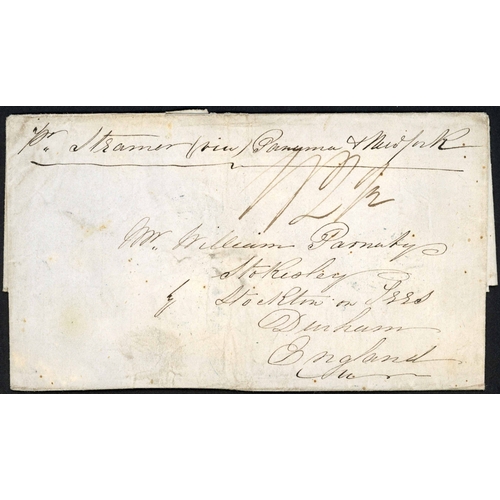 pr. Steamer (via) Panyma & New York.
1/2½
Mr. William Parnaby
Stokesley
by Stockton on Tees
Durham
England